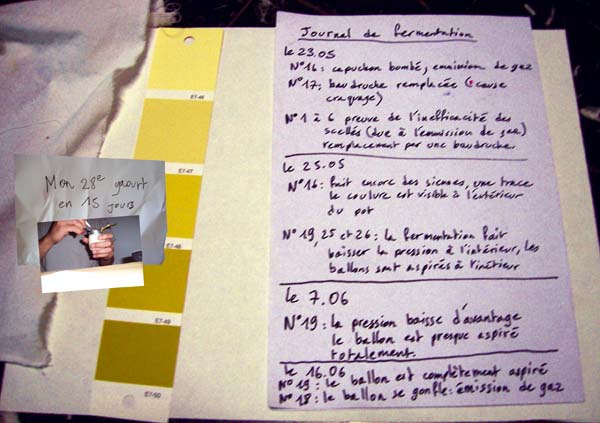 Journal de fermentation
le 23.05
N°16: capuchon bombé, emmision de gaz
N°17: baudruche remplacée (cause
craquage)
N°1 à 6 preuve de l'inefficacité des
scellés (due à l'emmission de gaz)
remplacement par une baudruche.
le 25.05
N°16: fait encore des siennes, une trace
de coulure est visible à l'extérieur
du pot
N°19, 25 et 26: la fermentation fait
baisser la pression à l'intérieur, les
ballons sont aspirés à l'intérieur
le 7.06
N°19: la pression baisse d'avantage
le ballon est presque aspiré
totalement.
le 16.06
N°19: le ballon est complètement aspiré
N°18: le ballon se gonfle: émission de gaz
Mon 28e yaourt
en 15 jours
E7-46
E7-47
E7-48
E7-49
E7-50